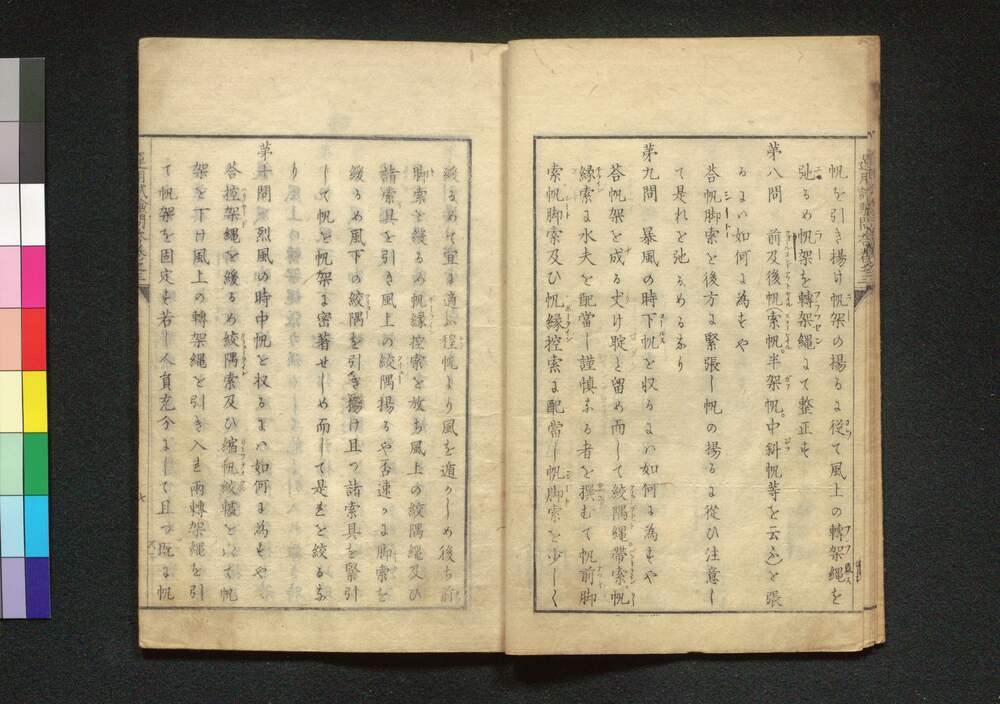 帆を引き揚け帆架の揚るに従て風上の轉架縄を
弛るめ帆架を轉架縄にて整正す
第八問 前及後帆(索帆。半架帆。中斜帆等を云ふ)を張
るには如何に為すや
シート
答帆脚索を後方に緊張し帆の揚るに從ひ注意し
て是れを弛るめるなり
第九問 暴風の時下帆を収るには如何に為すや
答帆架を成る丈け聢と留め而して絞隅縄帯索帆
縁索に水夫を配當し謹慎なる者を撰むて帆前脚
索帆脚索及ひ帆縁控索に配當し帆脚索を少しく
緩るめて宜に適 帆より風を遁かしめ後ち前
脚索を緩るめ帆縁控索を放ち風上の絞隅縄及ひ
諸索具を引き風上の絞隅揚るや否速かに脚索を
緩るめ風下の絞隅を引き揚け且つ諸索具を緊引
して帆を帆架に密著せしめ而して是を絞るな
り
第十問 烈風の時中帆を収るには如何に為すや
答控架縄を緩るめ絞隅索及ひ縮帆 を以て帆
架を下け風上の轉架縄を引き入れ兩轉架縄を引
て帆架を固定す若し人員充分にして且つ既に帆
七